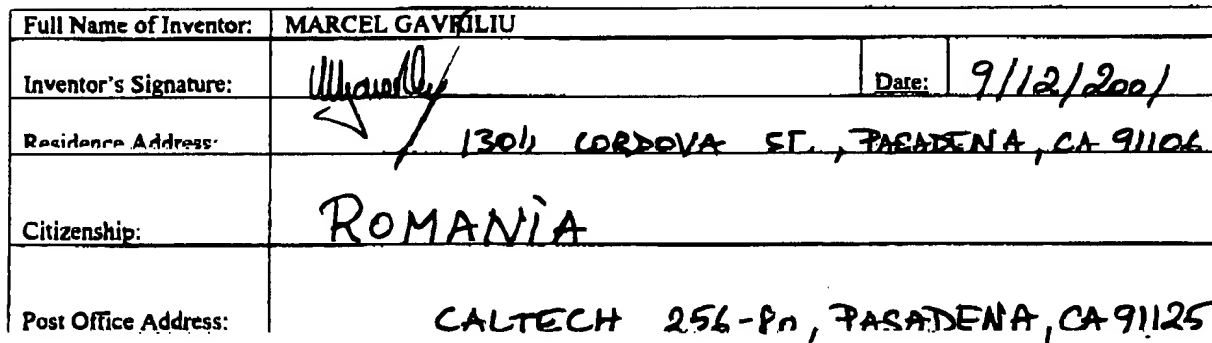 Full Name of Inventor: MARCEL GAVRILIU
Inventor's Signature: Date: 9/12/2001
Residence Address: CORDOVA ST., PASADENA, CA 91106
Citizenship: ROMANIA
Post Office Address: CALTECH 256-80, PASADENA, CA 91125